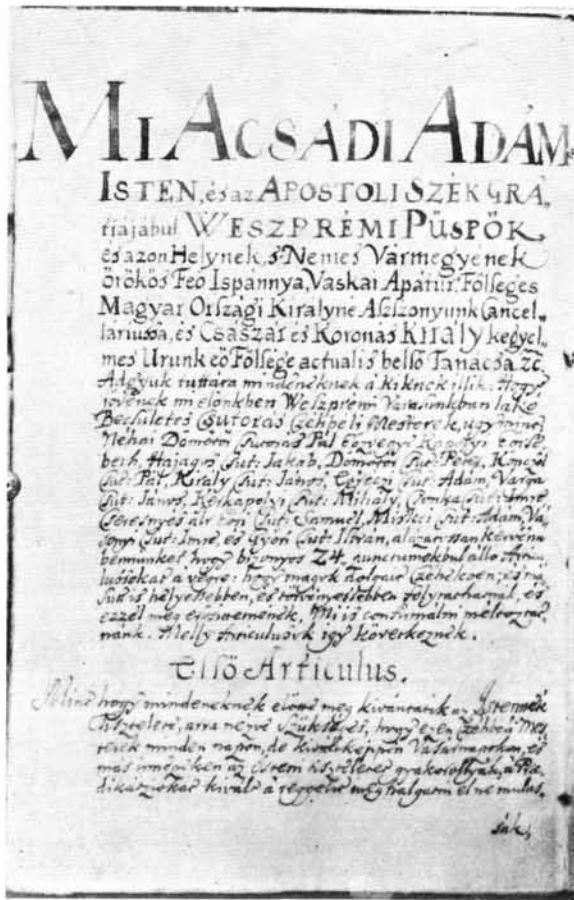 MI ACSÁDI ÁDÁM
ISTEN, és az APOSTOLI SZÉK GRÁ-
tiájábul WESZPRÉMI PÜSPÖK,
és azon Helynek, s Nemes Vármegyének
Örökös Feö Ispánnya, Vaskai Apátúr. Fölséges
Magyar Országi Királyné Aszszonyunk Cancel-
láriussa, és Császár és Koronás Király kegyel-
mes Urunk eö Fölsége actualis belsö Tanácsa. zc
Adgyuk tuttára mindeneknek a kiknek illik. Hogy
jövének mi elönkben Weszprémi Városunkban lakó
Becsületes Csutorás Czéhbéli Mesterek, ugymint
Néhai Domotori Csutorás Pál Özvegye
Hajagos Csut: Jakab, Domotori Csut: Péter,
Csut: Pál, Király Csut: János, Csut: Ádám, Varga
Csut: János, Kerkapolyi Csut: Mihály, Csonka Csut: Imre
Cseresnyés Csut: Samuel, Miskei Csut: Ádám,
Csut: Imre, és Györi Csut: István, alázatossan kérvén
bennünket hogy bizonyos 24. punctumokbul álló Articu-
lusokat a végre: hogy magok dolgait Czéhekben,
helyessebben, és törvényessebben folytathatnák,
ezzel Mi is confirmálni méltóztat-
nánk. Melly Articulusok igy következnek.
Elsö Articulus.
Mint hogy mindeneknek elötte meg kivántatik az Istennek
tisztelete, arra nézve szükséges, hogy ezen Czéhbéli Mes-
terek minden napon, de kiváltképpen Vasárnapokon, és
más innepeken az Isteni tiszteletet gyakorollyák, a Præ-
dikátziókat kivált a reggelit meg halgatni el ne mulas-
sák,